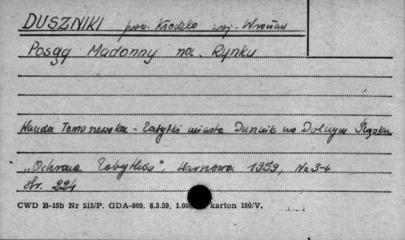 DUSZNIKI pow. Kłodzko woj. Wrocław
Posąg Madonny na Rynku
Wanda Tomaszewska - Zabytki miasta Dusznik na Dolnym Śląsku
„Ochrona Zabytków", Warszawa 1959, No 3-4
str. 224
CWD B-15b Nr 515/P. GDA-809. 6.3.59. karton 180/V.